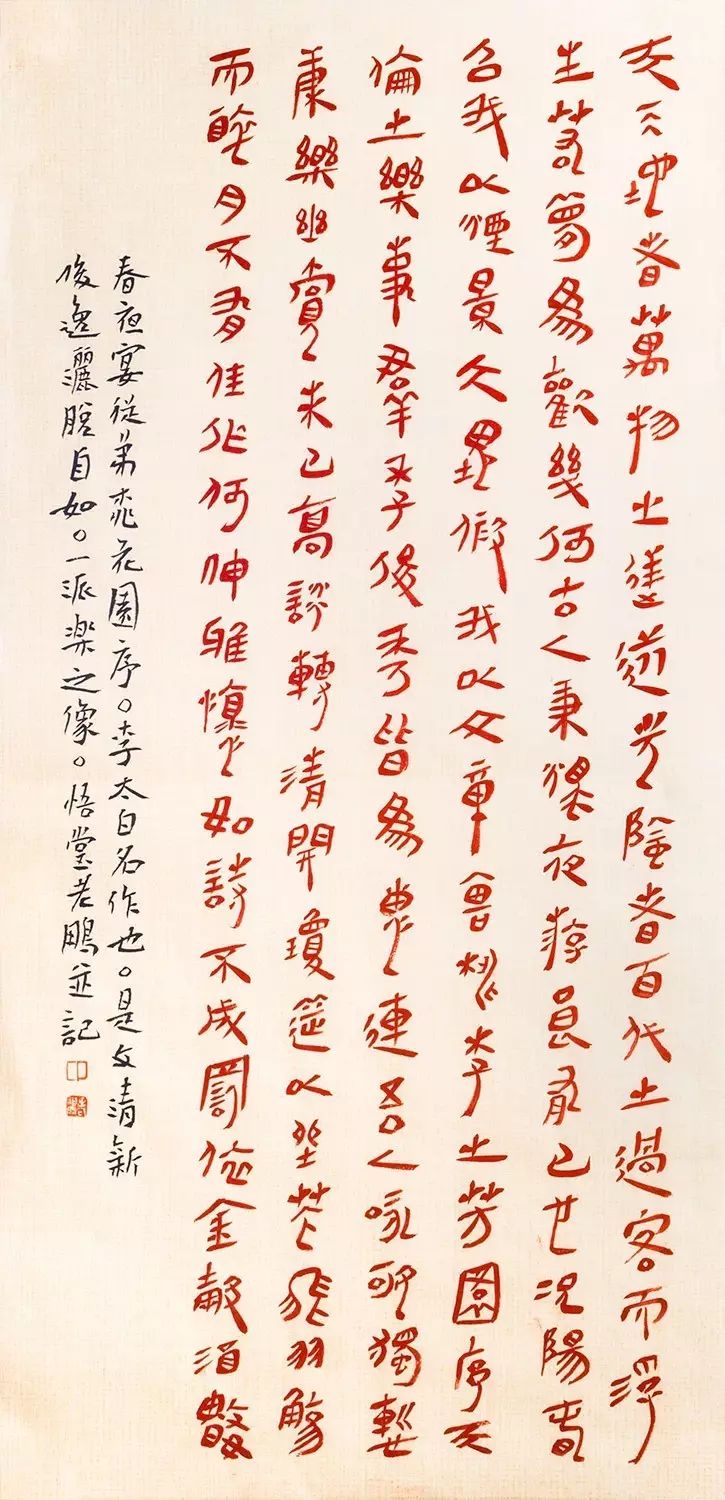 夫天地者萬物之逆旅光陰者百代之過客而浮
生若夢為歡幾何古人秉燭夜遊良有已也況陽春
召我以煙景大塊假我以文章會桃李之芳園序天
倫之樂事羣季俊秀皆為惠連吾人詠歌獨慚
康樂幽賞未已高談轉清開瓊筵以坐花飛羽觴
而醉月不有佳作何伸雅懷如詩不成罰依金谷酒數
春夜宴從弟桃花園序。李太白名作也。是文清新
俊逸灑脫自如。一派楽之像。悟堂老鵬並記